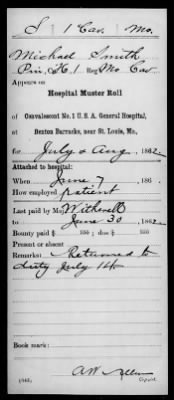 S | 1 Cav. | Mo.
Michael Smith
Pvt, Co. H, 1 Reg Mo Cav
Appears on
Hospital Muster Roll
of Convalescent No. 1 U. S. A. General Hospital,
at Benton Barracks, near St. Louis, Mo.,
for July & Aug, 1862
Attached to hospital:
When June 7, 186
How employed patient
Last paid by Maj Witherell
to June 30, 1862
Bounty paid $ 100; due $ 100
Present or absent
Remarks: Returned to
duty July 16
Book mark:
A W Allen
Copyist.